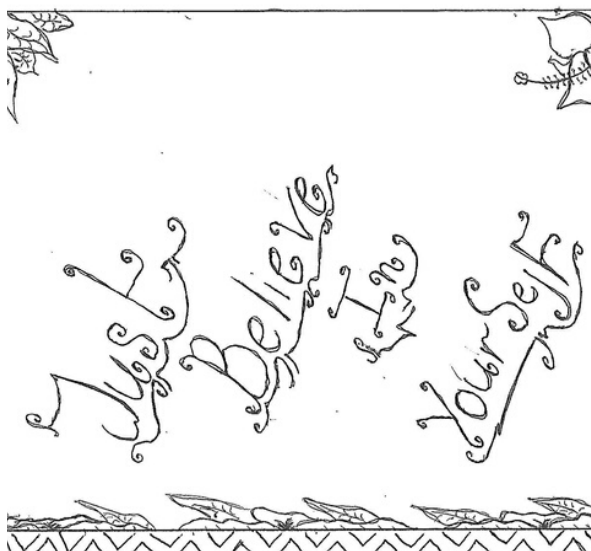 Just
Believe
In
YourSelf